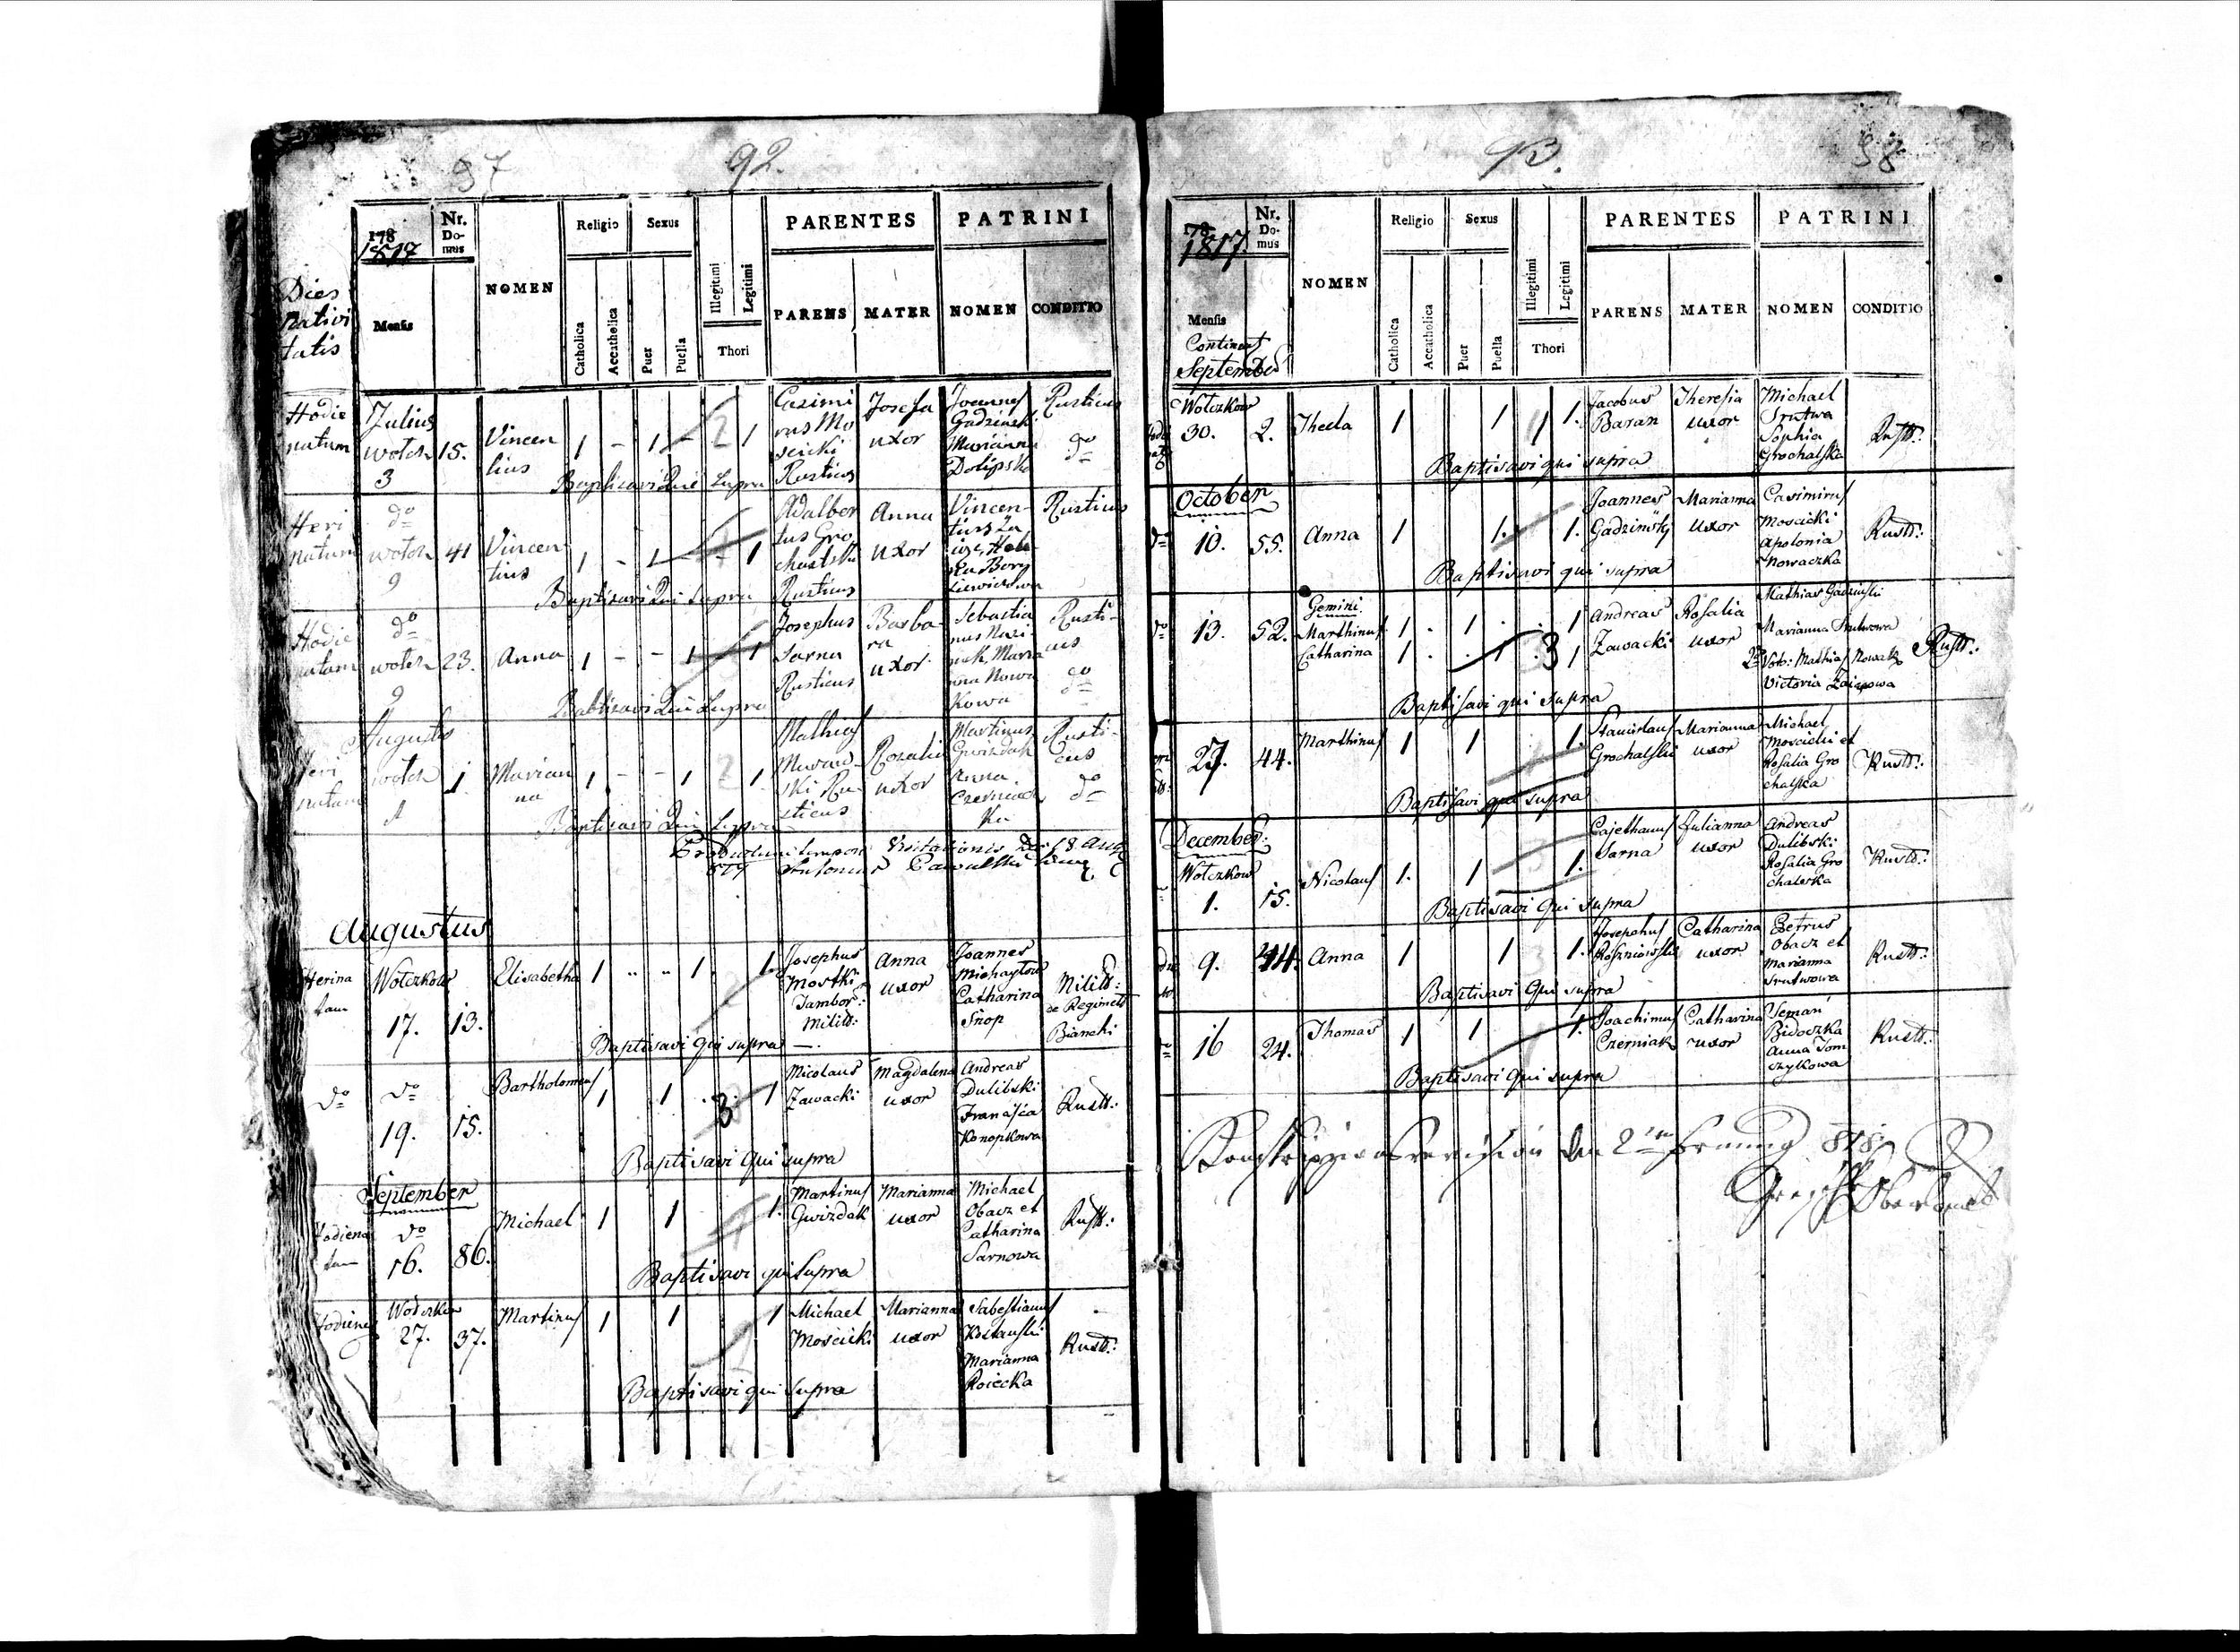 97 92.
178
1817
Nr. Domus
NOMEN
Religio
Sexus
PARENTES
PATRINI
Dies Nativitatis
Mensis
Catholica
Accatholica
Puer
Puella
Illegitimi
Legitimi
Thori
PARENS
MATER
NOMEN
CONDITIO
Hodie natum
Julius
wolcz 15.
3
Vincentius
1 - 1 - 1
Casimirus Moscicki Rusticus
Josefa uxor
Joannes Gadzinski
Marianna Dolipska
Rusticus
do
Baptisavi Qui Supra
Heri natum
do
wolcz 41
9
Vincentius
1 - 1 - 1
Adalbertus Grochalski Rusticus
Anna uxor
Vincentius
Rusticus
Baptisavi Qui Supra
Hodie natam
do
wolcz 23.
9
Anna
1 - - 1 1
Josephus Sarna Rusticus
Barbara uxor
Sebastianus
Marianna Nowakowa
Rusticus
do
Baptisavi Qui Supra
Augustus
Heri natam
wolcz 1
Marianna
1 - - 1 1
Mathias
Rusticus
Rozalia uxor
Martinus Gwizdak
Anna Czerniacka
Rusticus
do
Baptisavi Qui Supra
tempore Visitationis Die 18 Aug
817 Antonius
Augustus
Heri natam
Wolczkow
17. 13.
Elisabetha
1 .. .. 1. 1.
Josephus Mostki Tambor: Milit:
Anna uxor
Joannes Michaylow
Catharina Snop
Milit: de Regimet Bianchi
Baptisavi qui supra
do
do
19. 15.
Bartholomeus
1 1 3 1
Nicolaus Zawacki
Magdalena uxor
Andreas Dulibski
Francisca Konopkowa
Rustt:
Baptisavi Qui supra
September
Hodie natam
do
16. 86.
Michael
1 1 1.
Martinus Gwizdak
Marianna uxor
Michael Obacz et
Catharina Sarnowa
Rustt:
Baptisavi qui Supra
Wolczkow
27. 37.
Martinus
1 1 1
Michael Moscicki
Marianna uxor
Sabestianus
Marianna Roiecka
Rustt:
Baptisavi qui Supra
93. 98
178
1817.
Nr. Domus
NOMEN
Religio
Sexus
PARENTES
PATRINI
Mensis
Continet September
Catholica
Accatholica
Puer
Puella
Illegitimi
Legitimi
Thori
PARENS
MATER
NOMEN
CONDITIO
Wolczkow
30. 2.
Thecla
1 1 1.
Jacobus Baran
Theresia uxor
Michael Srutwa
Sophia Grochalska
Rustt:
Baptisavi qui supra
October
do
10. 55.
Anna
1 1. 1.
Joannes Gadzinsky
Marianna uxor
Casimirus Moscicki
Apolonia Nowaczka
Rustt:
Baptisavi qui supra
do
13. 52.
Gemini.
Marthinus
Catharina
1 . 1 . . 1
1 . . 1 . 3 1
Andreas Zawacki
Rosalia uxor
Mathias Gadzinski
Marianna Srutwowa
2do Voto: Mathias Nowak
Victoria
Rustt:
Baptisavi qui supra
27. 44.
Marthinus
1 1 1.
Stanislaus Grochalski
Marianna uxor
Michael Moscicki et
Rosalia Grochalska
Rustt:
Baptisavi qui supra
December.
Wolczkow
1. 15.
Nicolaus
1. 1 1.
Cajethanus Sarna
Julianna uxor
Andreas Dulibski
Rosalia Grochalska
Rustt:
Baptisavi Qui supra
9. 44.
Anna
1 1 1.
Josephus
Catharina uxor
Petrus Obacz et
Marianna Srutwowa
Rustt:
Baptisavi Qui supra
do
16 24.
Thomas
1 1 1.
Joachimus Czerniak
Catharina uxor
Seman Bidoczka
Anna Tomszykowa
Rustt:
Baptisavi Qui supra